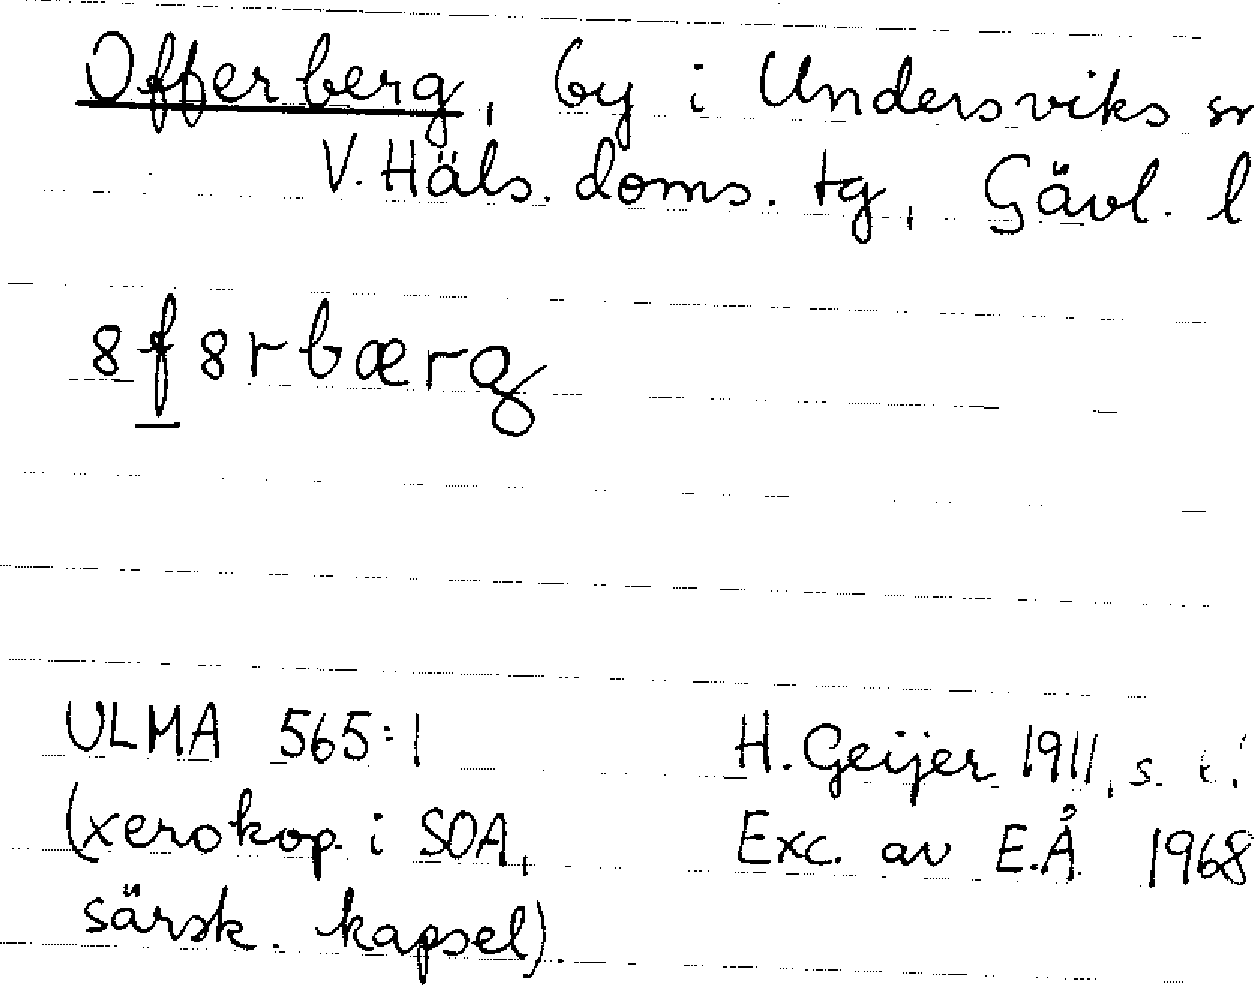 Offerberg, by i Undersviks sn
V. Häls. doms. tg, Gävl. l
8f8rbærg
ULMA 565:1 H. Geijer 1911, s.
(xerokop. i SOA, Exc. av E.Å. 1968
särsk. kapsel).